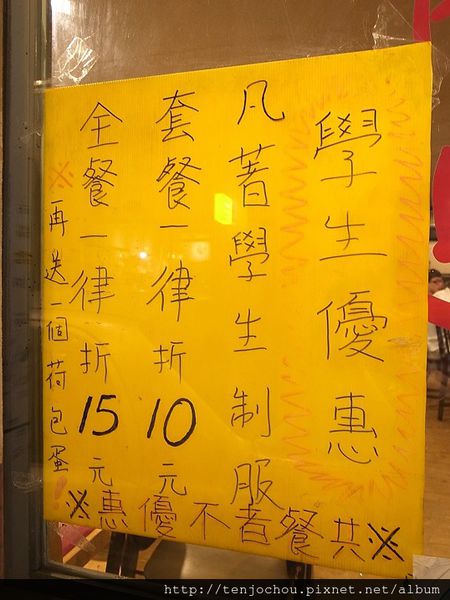 學生優惠
凡著學生制服
套餐一律折10元
全餐一律折15元
※再送一個荷包蛋!
※共餐者不優惠※
http://tenjochou.pixnet.net/album